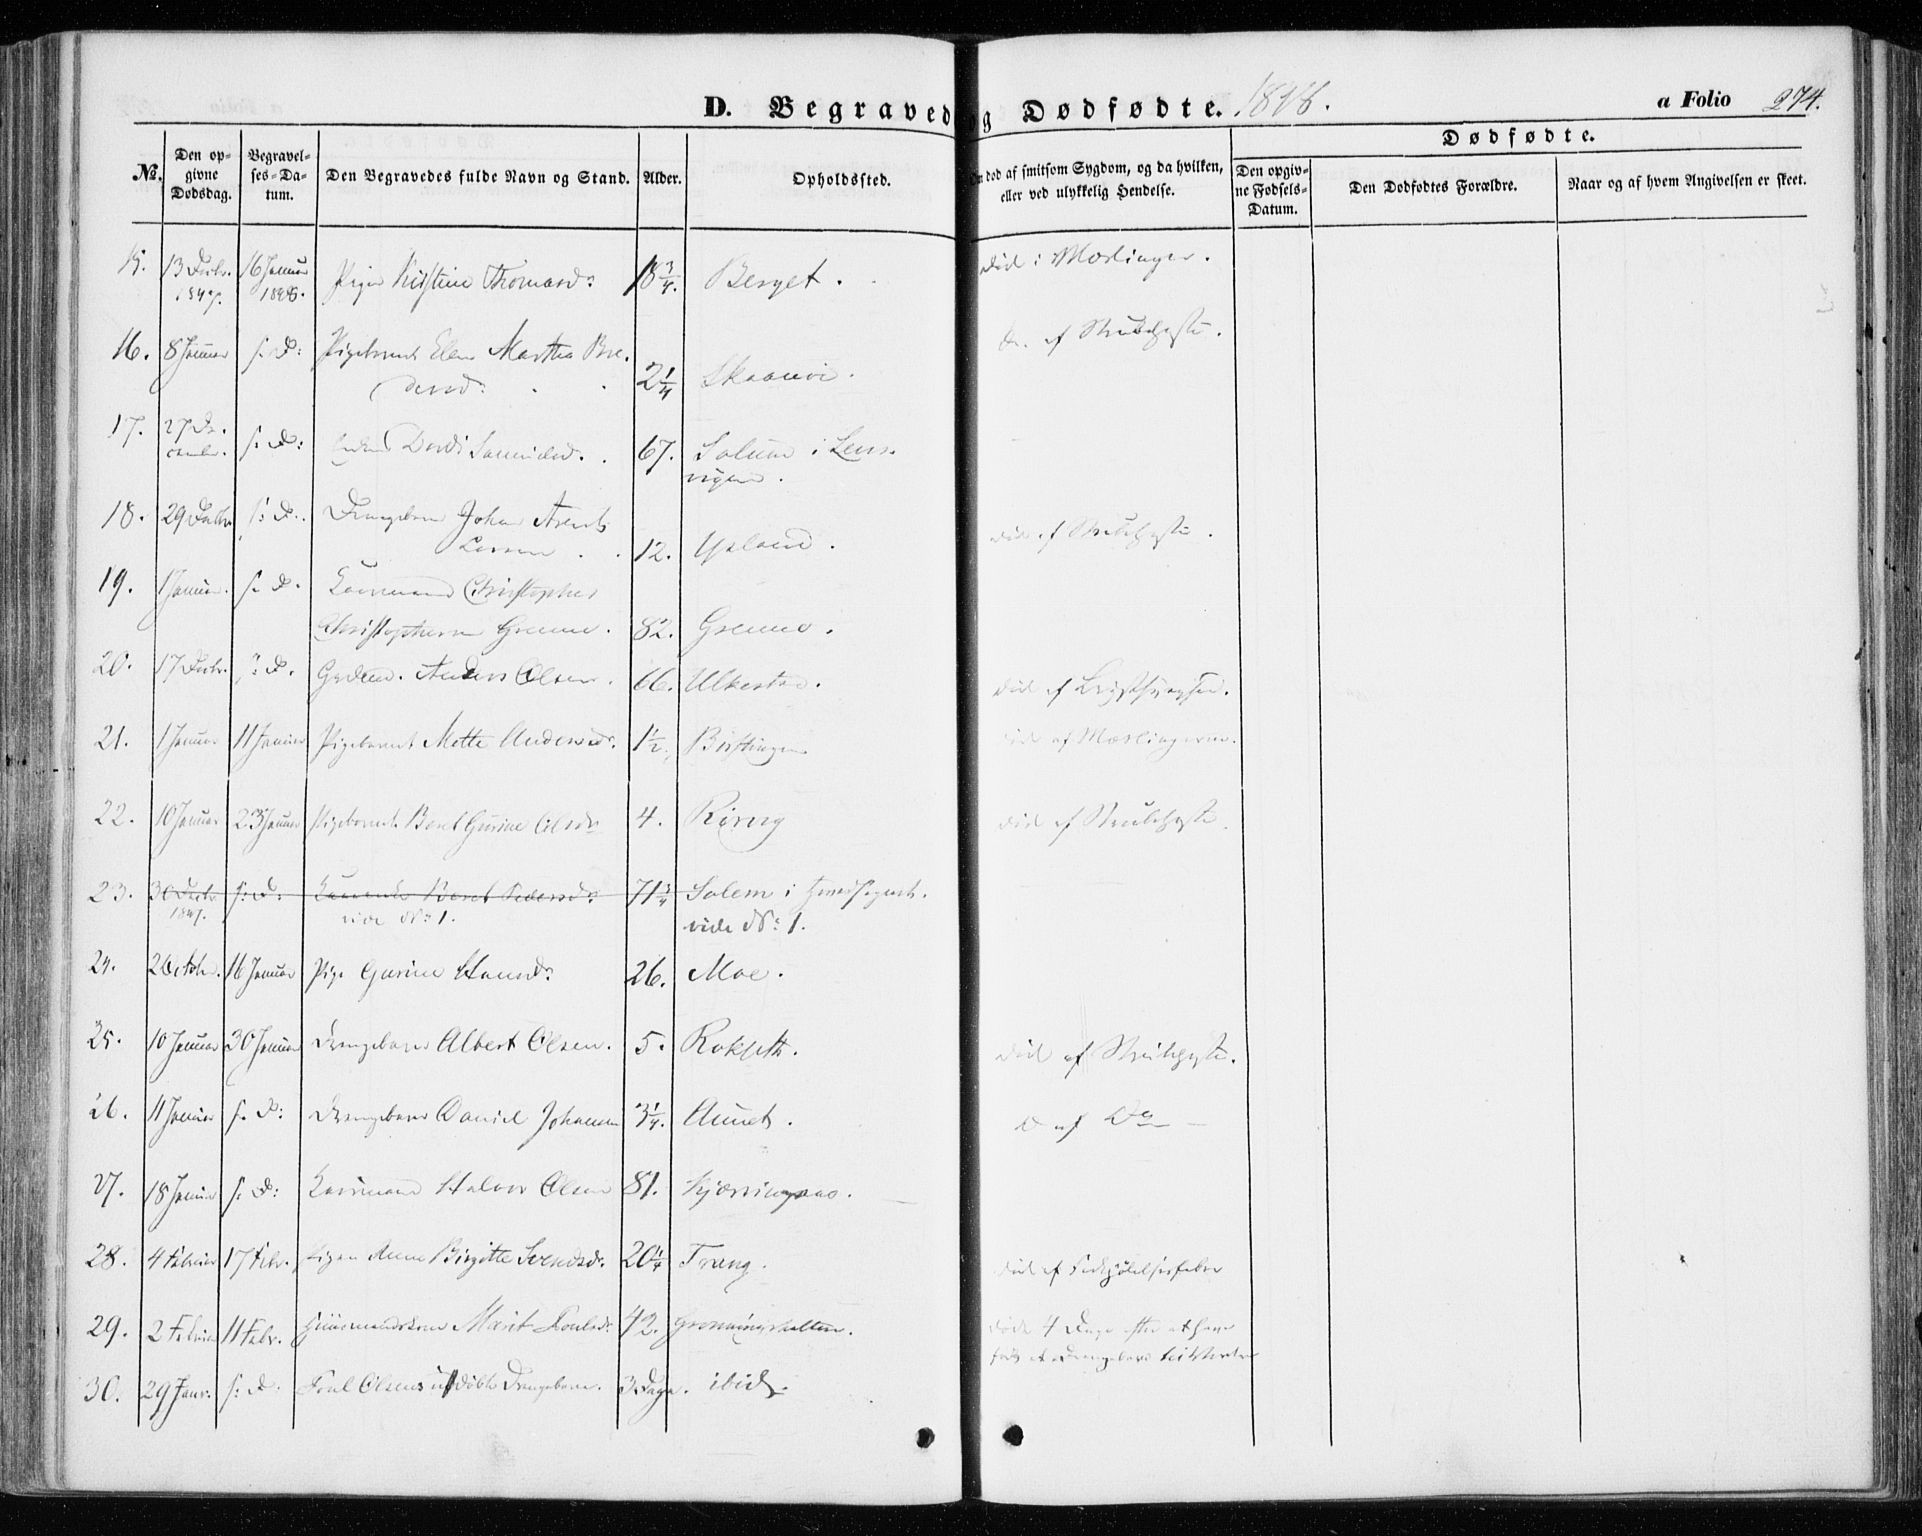 D. Begravede og Dødfødte. 1848. a Folio 274.
Dødfødte.
No. Den opgivne Dødsdag. Begravelses-Datum. Den Begravedes fulde Navn og Stand. Alder. Opholdssted. Om død af smitsom Sygdom, og da hvilken, eller ved ulykkelig Hendelse. Den opgivne Fødsels-Datum. Den Dødfødtes Forældre. Naar og af hvem Angivelsen er skeet.
15. 13 Decbr. 1847. 16 Januar 1848. Pige Kirstine Thomasd: 18 3/4. Berget. død i Mæslinger.
16. 8 Januar s. D: Pigebarnet Elen Martha 2 1/4 Skaanøe. D. af Strubehoste.
17. 27 De-
cember. s. D: Dordi 67. i Lens-
vigen.
18. 29 Decbr s: D. Drengebarn Johan Arent
Larsen 12. Ysland. død af Strubehoste.
19. 1 Januar. s. D. Kaarmand Christopher
Christophersen Grenne. 82. Grenne.
20. 17 Decbr. s: D. Gaardm. Anders Olsen. 66. Ulkestad. død af Brystsyge.
21. 1 Januar 11 Januar Pigebarnet Mette Andersd: 1 1/2. Børstingen død af Mæslingerne.
22. 10 Januar 23 Januar Pigebarnet Beret Gurine Olsd: 4. død af Strubehoste.
23. 30 Decbr. 1847. s: D: Beret Pedersd: 71 3/4 Solem i
vide No: 1. vide No: 1.
24. 16 Januar Pige Gurine Hansd: 26. Moe.
25. 10 Januar 30 Januar Drengebarn Albert Olsen. 5. Rokseth. død af Strubehoste.
26. 11 Januar s. D: Drengebarn Daniel Johansen 3 1/4. Aunet. D af Do
27. 18 Januar s: D: Kaarmand Halvor Olsen 81. Kjørringaas.
28. 4 Februar 17 Febr. Pigen Anne Birgitte Svendsd: 20 1/4 Træng. død af
29. 2 Februar 11 Febr. Huusmandskone Marit Poulsd: 42. Grønningshalten. døde 4 Dage efter at have
født et Drengebarn
30. 29 Janr. s: D: Poul Olsens udøbte Drengebarn. 3 Dage. ibid.